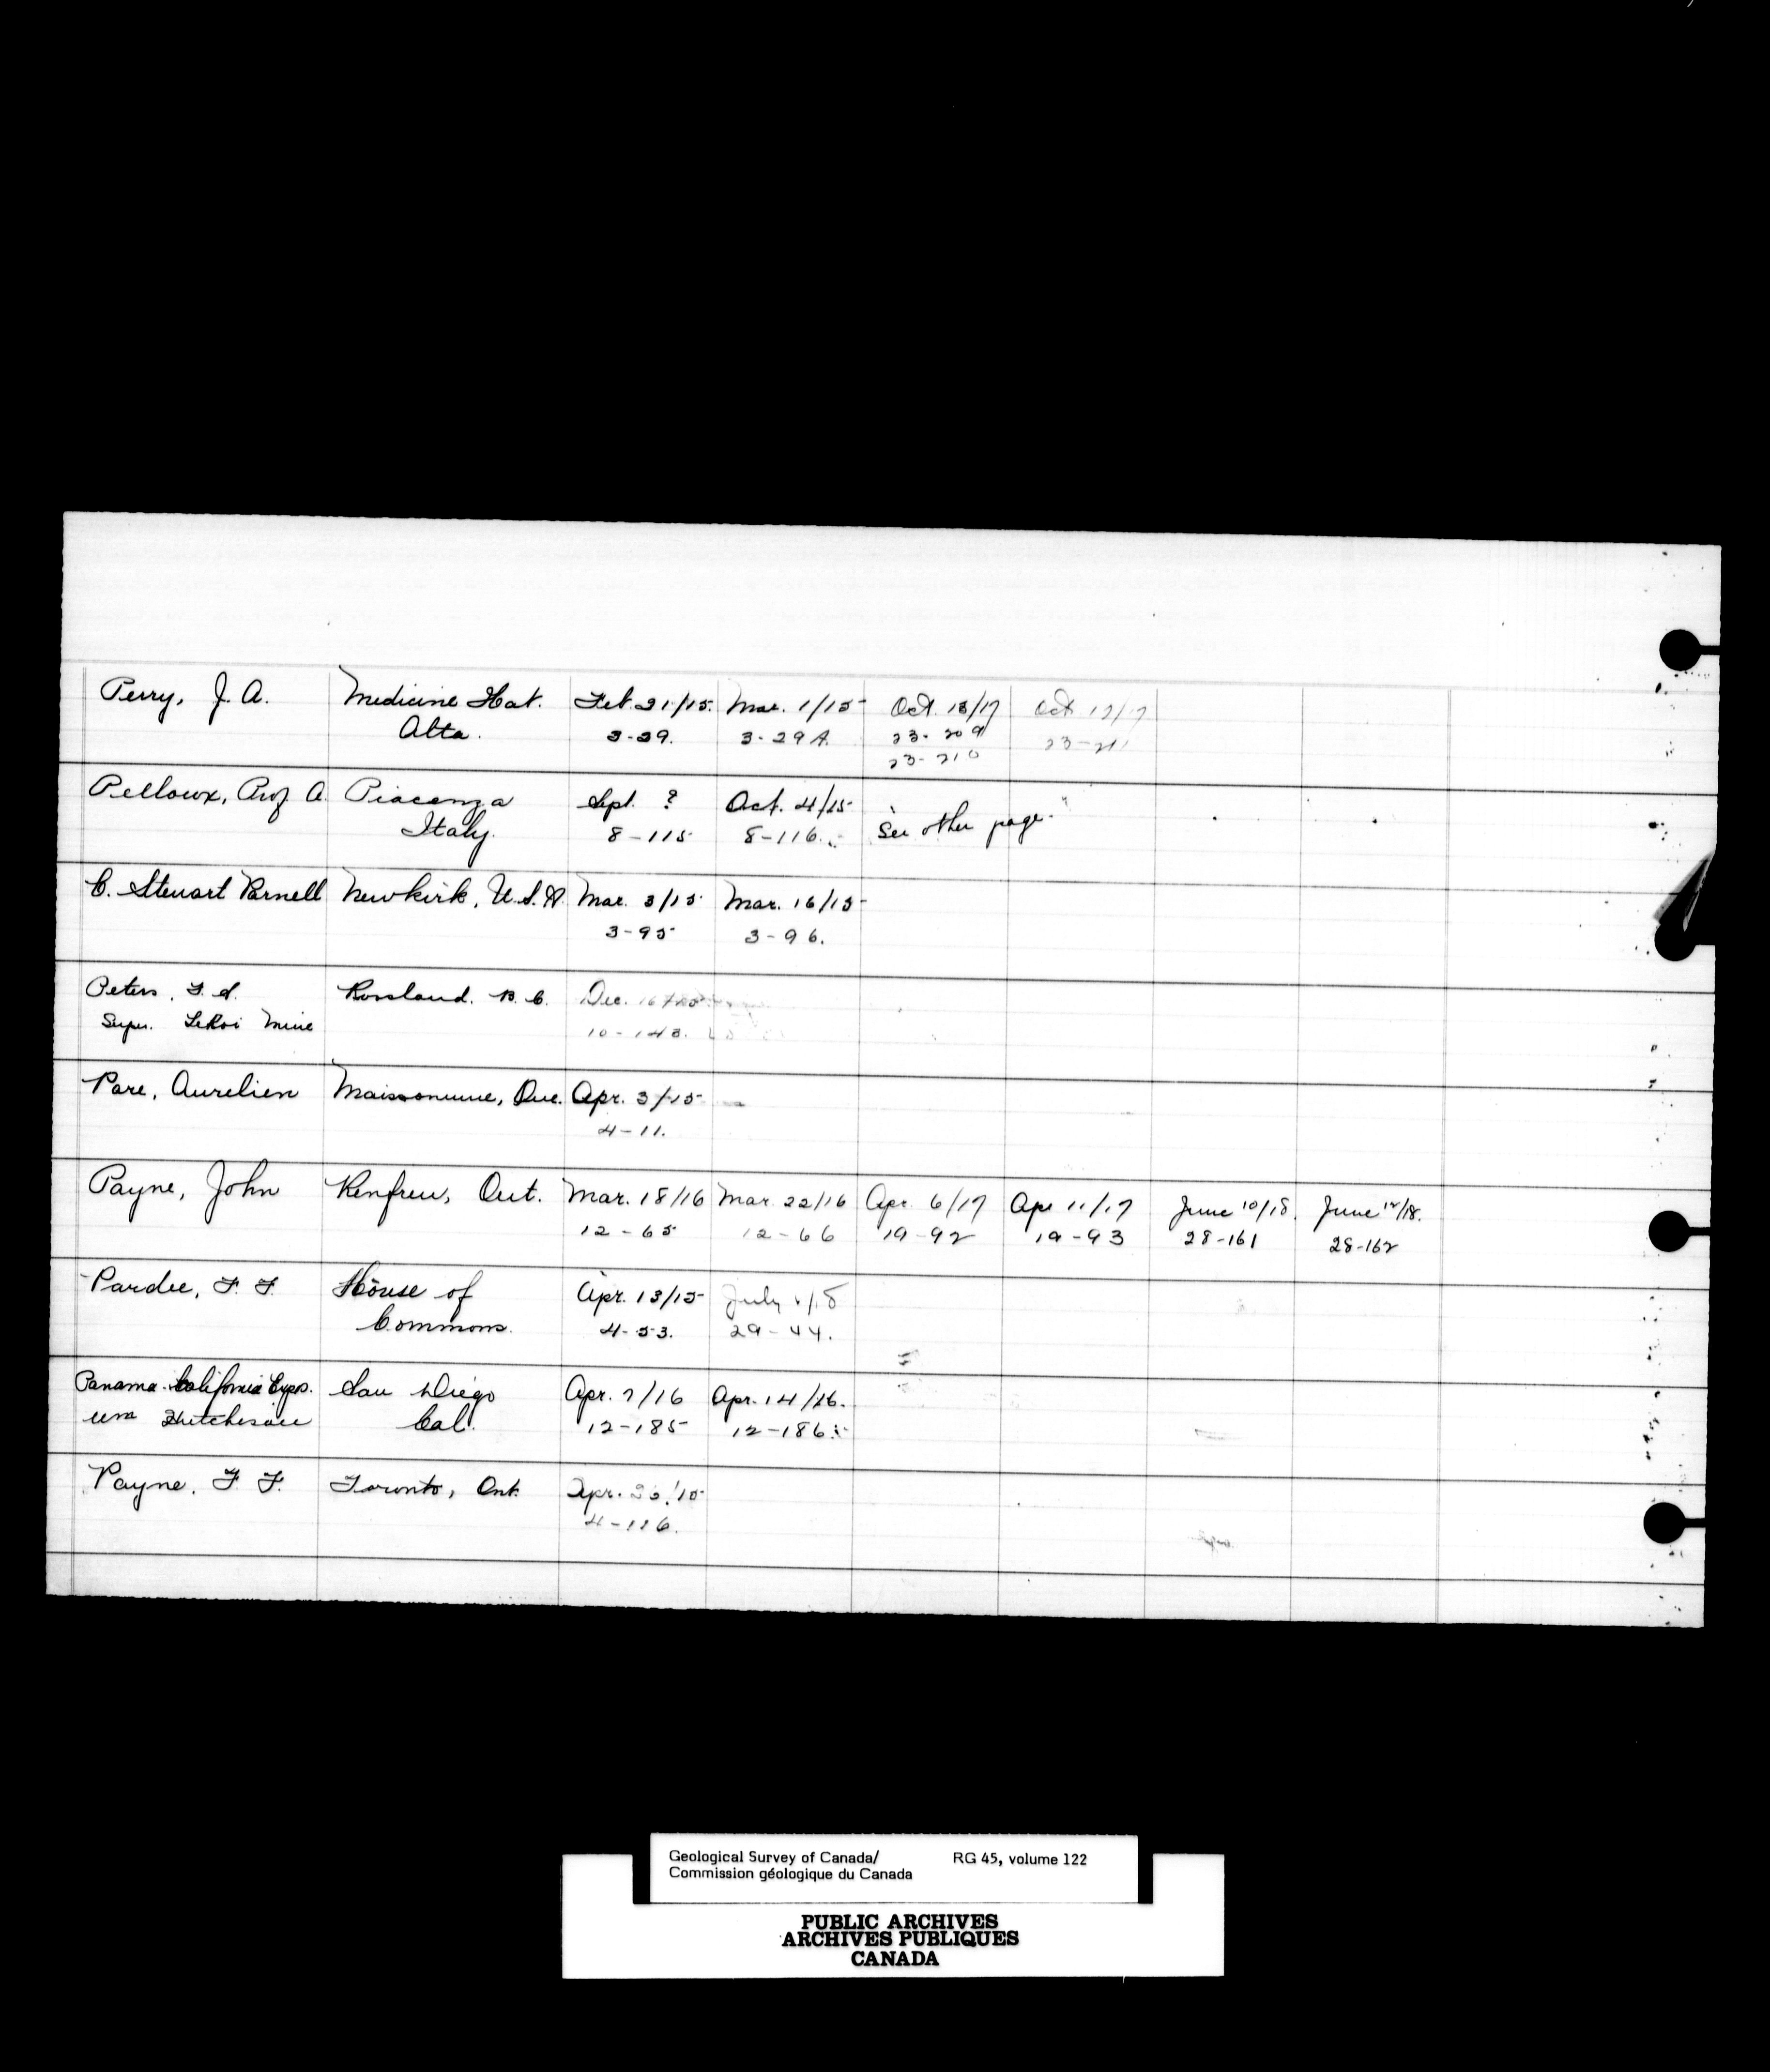 Perry, J. A. Medicine Hat. Feb. 21/15. Mar. 1/15 Oct. 18/17 Oct 17/17
Alta. 3-29. 3-29A. 23-209 23-211
23-210
Pelloux, Prof. A. Piacenza Sept. ? Oct. 4/15
Italy. 8-115 8-116. See other page.
C. Steuart Parnell Newkirk, U.S.A. Mar. 3/15 Mar. 16/15
3-95 3-96.
Peters, F. S. Rossland. B. C. Dec.
Supu. LeRoi Mine 10-143.
Pare, Aurelien Maissoneuve, Que. Apr. 3/15
4-11.
Payne, John Renfrew, Ont. Mar. 18/16 Mar. 22/16 Apr. 6/17 Apr 11/17 June 10/18. June 12/18.
12-65 12-66 19-92 19-93 28-161 28-162
Pardee, F. F. House of Apr. 13/15 July
Commons. 4-53. 29-44.
Panama-California Expos. San Diego Apr. 7/16 Apr. 14/16.
Wm Hutcheson Cal. 12-185 12-186.
Payne, F. F. Toronto, Ont. Apr.
4-116.
Geological Survey of Canada/ RG 45, volume 122
Commission géologique du Canada
PUBLIC ARCHIVES
ARCHIVES PUBLIQUES
CANADA